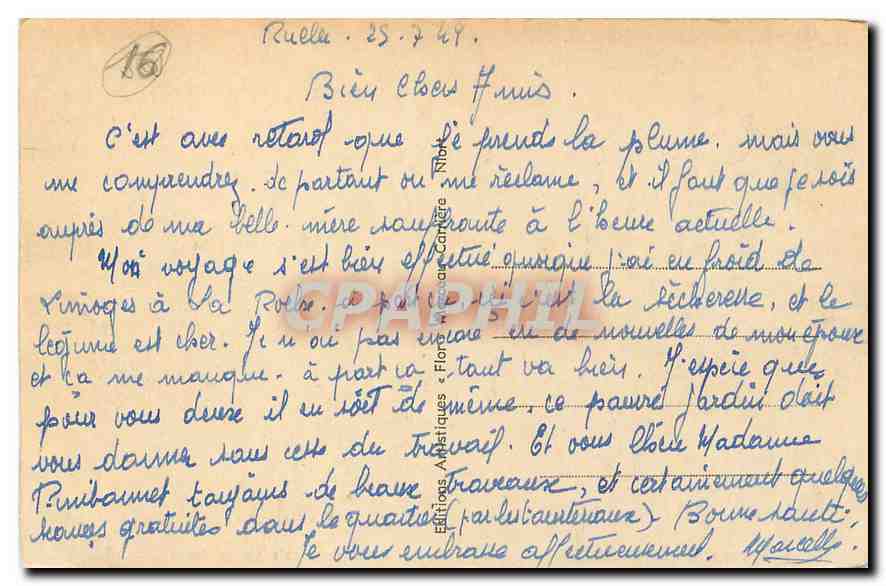 Ruelle . 25 . 7 49 .
16
Bien Chers Amis .
C'est avec retard que je prends la plume. mais vous
me comprendrez. de partout on me réclame, et il faut que je sois
auprès de ma belle-mère souffrante à l'heure actuelle.
Mon voyage s'est bien effectué quoique j'ai eu froid de
Limoges à La Roche. à part ici c'est la sécheresse, et le
légume est cher. Je n'ai pas encore eu de nouvelles de mon époux
et ça me manque. à part ça tout va bien. J'espère que
pour vous deux il en soit de même, ce pauvre jardin doit
vous donner sans cesse du travail. Et vous Chère Madame
toujours de beaux travaux, et certainement quelques
séances gratuites dans le quartier (par les) Bonne santé.
Je vous embrasse affectueusement. Marcelle
Editions Artistiques « Flor » Carrière Niort
CPAPHIL